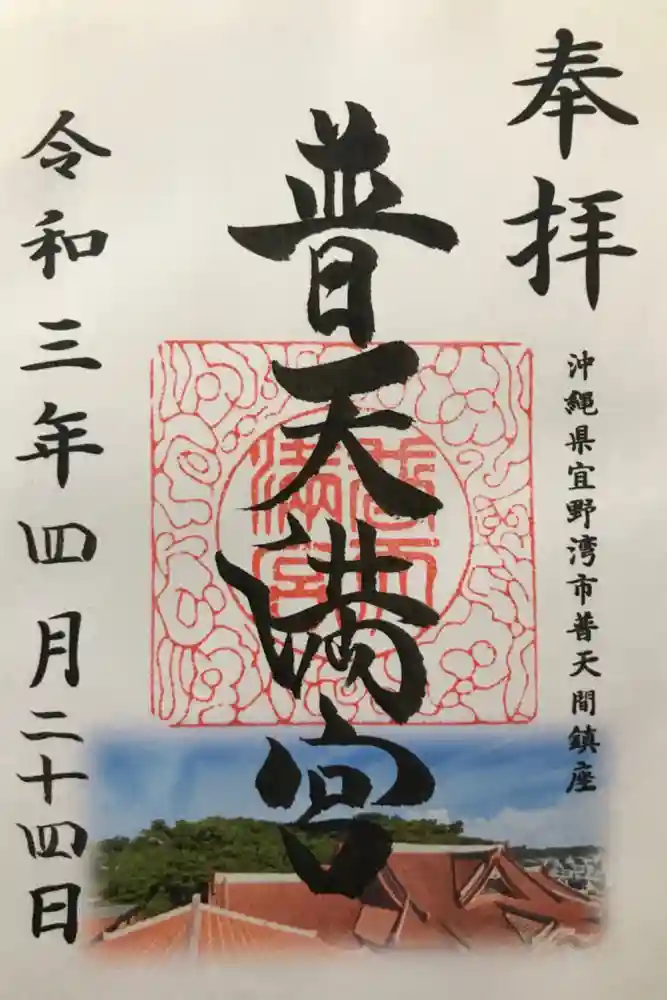 奉拝
沖縄県宜野湾市普天間鎮座
普天満宮
普天満宮
令和三年四月二十四日